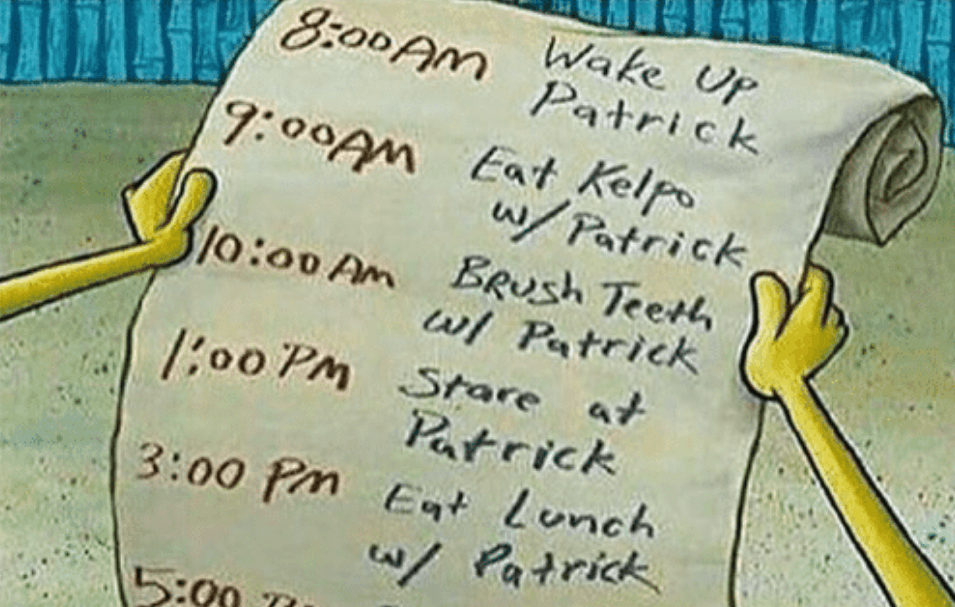 8:00 AM Wake Up
Patrick
9:00 AM Eat Kelpo
w/ Patrick
10:00 Am Brush Teeth
w/ Patrick
1:00 PM Stare at
Patrick
3:00 Pm Eat Lunch
w/ Patrick
5:00